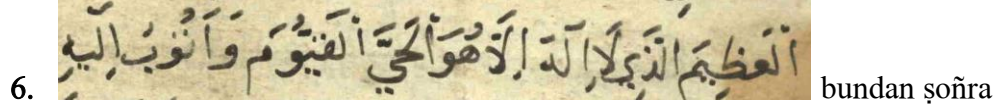 6. اَلْعَظِيمَ الَّذِي لَا اِلَهَ اِلَّا هُوَ اَلْحَيَّ اَلْقَيُّومَ وَاَتُوبُ اِلَيْهِ bundan ṣoñra